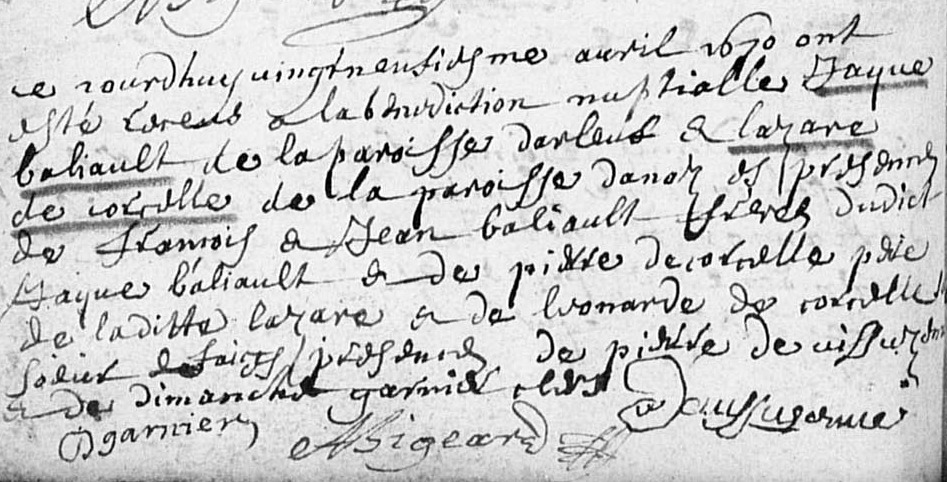 ce jourdhuy vingtneufiesme auril 1670 ont
esté receus a la benediction nuptialle Jaque
baliault de la paroisse darleuf & lazare
de corcelle de la paroisse danoz es presences
de francois & Jean baliault freres dudict
Jaque baliault & de pierre de corcelle pere
de laditte lazare & de leonarde de corcelle
soeur & faict es presences de pierre de
& de dimanche garnier clerc
D garnier Bigeard